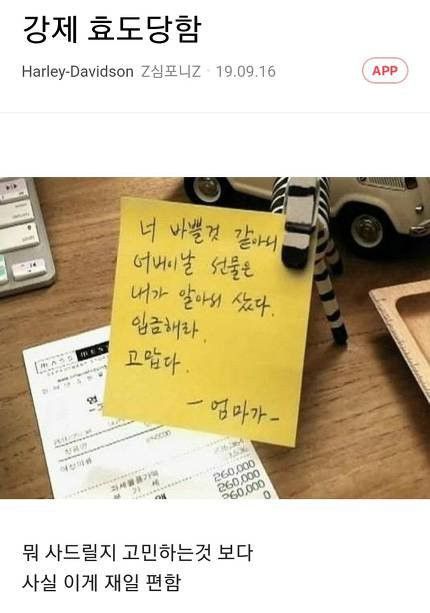 강제 효도당함
Harley-Davidson Z심포니Z · 19.09.16
APP
너 바쁠것 같아서
어버이날 선물은
내가 알아서 샀다.
입금해라.
고맙다.
- 엄마가 -
260,000
260,000
260,000
뭐 사드릴지 고민하는것 보다
사실 이게 재일 편함